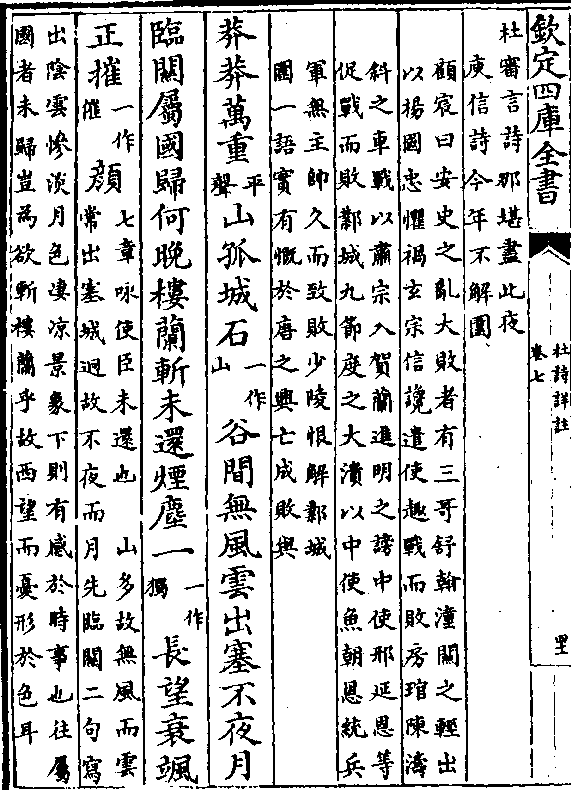 欽定四庫全書
杜詩詳註
卷七
杜審言詩那堪盡此夜
庾信詩今年不解圍
顧宸曰安史之亂大敗者有三哥舒翰潼關之輕出
以楊國忠懼禍玄宗信讒遣使趣戰而敗房琯陳濤
斜之車戰以肅宗入賀蘭進明之謗中使邢延恩等
促戰而敗鄴城九節度之大潰以中使魚朝恩統兵
軍無主帥久而致敗少陵恨解鄴城
圍一語實有慨於唐之興亡成敗與
莽莽萬重平聲山孤城石一作山谷間無風雲出塞不夜月
臨關屬國歸何晚樓蘭斬未還煙塵一一作獨長望衰颯
正摧一作催顏七章咏使臣未還也 山多故無風而雲
常出塞城迥故不夜而月先臨關二句寫
出陰雲慘淡月色凄凉景象下則有感於時事也往屬
國者未歸豈為欲斬樓蘭乎故西望而憂形於色耳